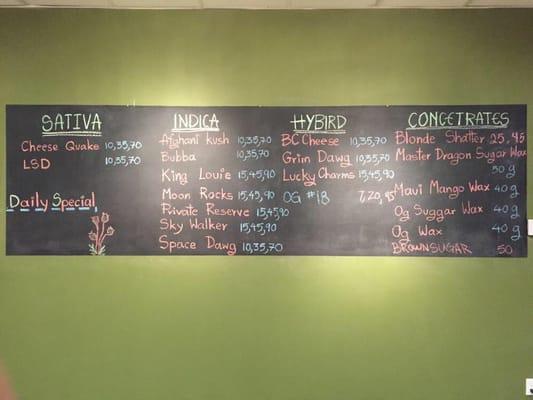 SATIVA
Cheese Quake 10,35,70
LSD 10,35,70
Daily Special
INDICA
Afghani kush 10,35,70
Bubba 10,35,70
King Louie 15,45,90
Moon Rocks 15,45,90
Private Reserve 15,45,90
Sky Walker 15,45,90
Space Dawg 10,35,70
HYBIRD
BC Cheese 10,35,70
Grim Dawg 10,35,70
Lucky Charms 15,45,90
OG #18 7,20,
CONCETRATES
Blonde Shatter 25,45
Master Dragon Sugar Wax
50 g
Maui Mango Wax 40 g
Og Suggar Wax 40 g
Og Wax 40 g
BROWNSUGAR 50